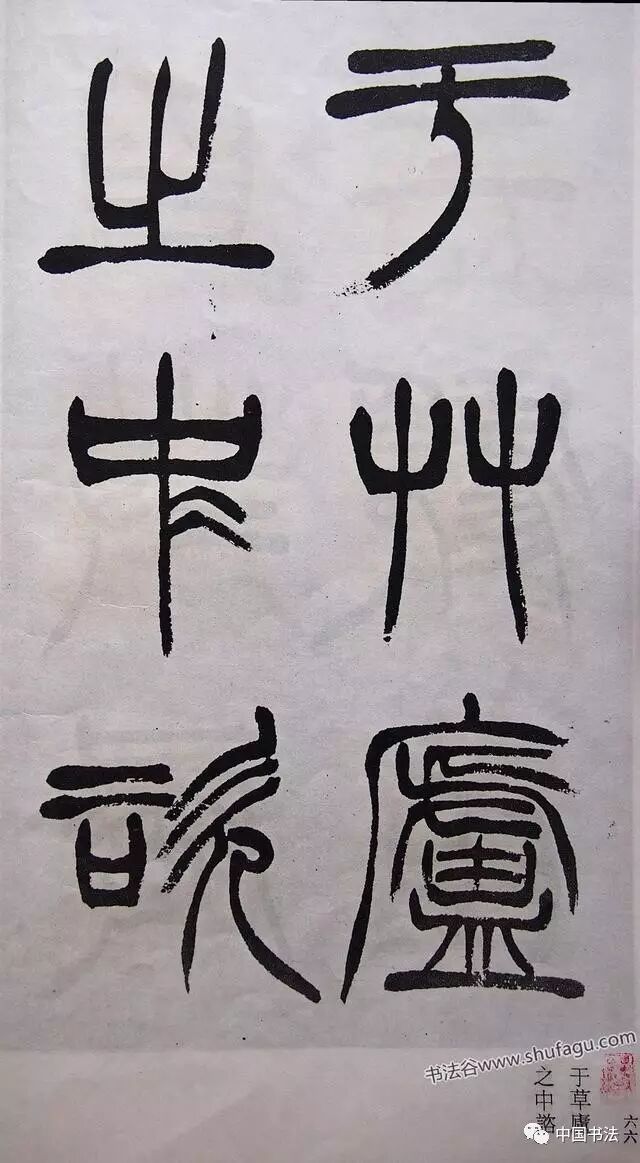 于艸廬
之中諮
书法谷www.shufagu.com
六六
于草廬
之中諮
中国书法